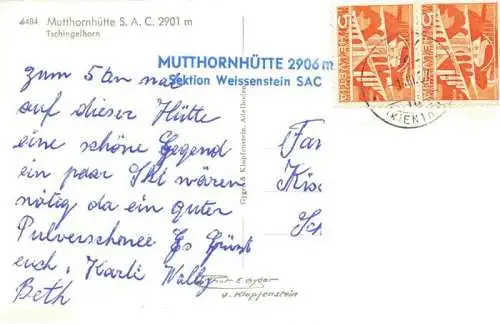 6484 Mutthornhütte S. A. C. 2901 m
Tschingelhorn
MUTTHORNHÜTTE 2906 m
Sektion Weissenstein SAC
zum 5ten mal
auf dieser Hütte
eine schöne Gegend
ein paar Ski wären
nötig da ein guter
Pulverschenee Es Grüsst
euch. Karli Wally
Beth
Gyger & Klopfenstein, Adelboden
Fam
Kis
Sch
5
5
HELVETIA
HELVETIA
(KIENTAL
Gyger
& Klopfenstein